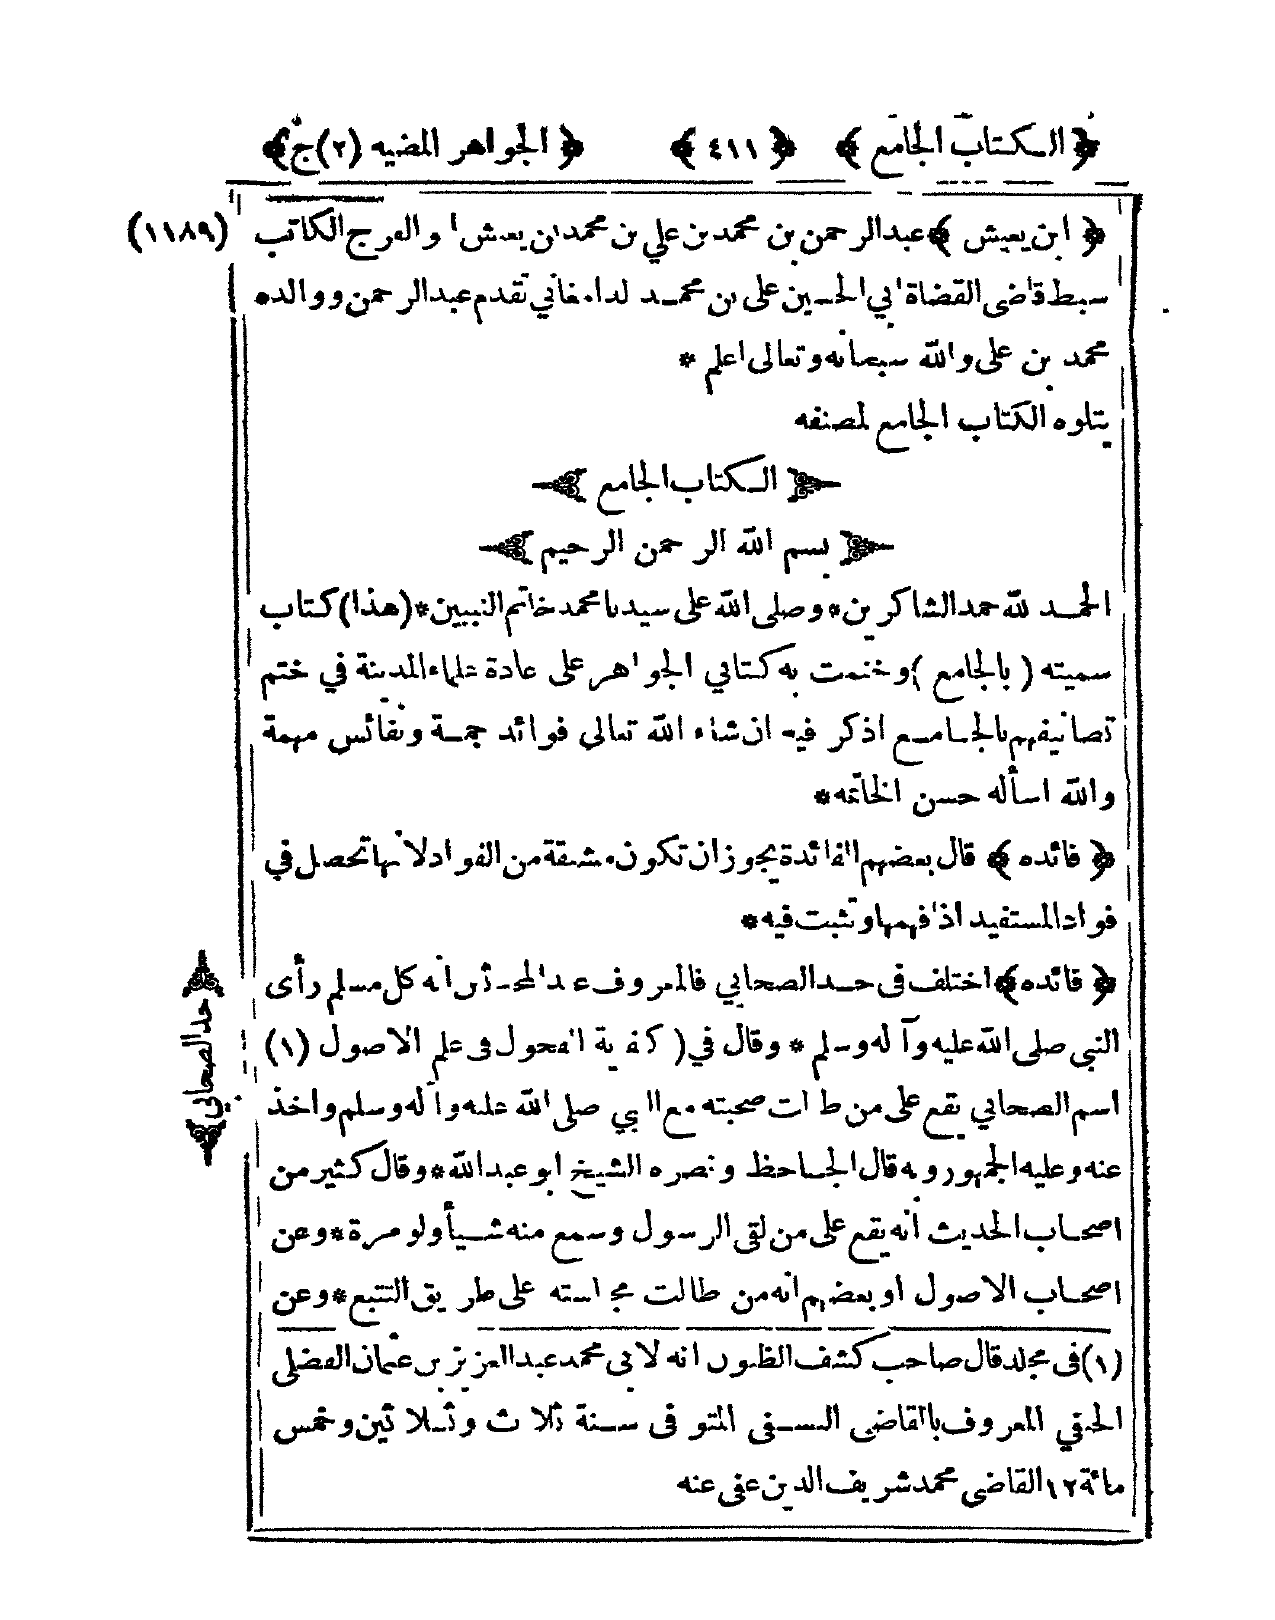 ﴿ الكتاب الجامع ﴾ ﴿ ٤١١ ﴾ ﴿ الجواهر المضيه (٢) ج﴾
﴿ ابن يعيش ﴾ عبدالرحمن بن محمد بن علي بن محمد بن يعيش ا و الفرج الكاتب (١١٨٩)
سبط قاضى القضاة ابي الحسين على بن محمد الدامغاني تقدم عبدالرحمن ووالده
محمد بن على والله سبحانه وتعالى اعلم *
يتلوه الكتاب الجامع لمصنفه
الكتاب الجامع
بسم الله الرحمن الرحيم
الحمد لله حمد الشاكرين * وصلى الله على سيدنا محمد خاتم النبيين * (هذا) كتاب
سميته ( بالجامع ) وختمت به كتابي الجواهر على عادة علماء المدينة في ختم
تصانيفهم بالجامع اذكر فيه ان شاء الله تعالى فوائد جمة ونفائس مهمة
والله اسأله حسن الخاتمه *
﴿ فائده ﴾ قال بعضهم الفائدة يجوز ان تكون مشقة من الفواد لانها تحصل في
فواد المستفيد اذا فهمها وتثبت فيه *
﴿ فائده ﴾ اختلف فى حد الصحابي فالمعروف عند المحدثين انه كل مسلم رأى
النبى صلى الله عليه وآله وسلم * وقال في ( كفاية الفحول فى علم الاصول (١)
اسم الصحابي يقع على من طالت صحبته مع النبي صلى الله عليه وآله وسلم واخذ
عنه وعليه الجمهور وبه قال الجاحظ ونصره الشيخ ابو عبدالله * وقال كثير من
اصحاب الحديث انه يقع على من لقى الرسول وسمع منه شيأ ولو مرة * وعن
اصحاب الاصول او بعضهم انه من طالت مجالسته على طريق التتبع * وعن
حد الصحابي
(١) فى مجلد قال صاحب كشف الظنون انه لابى محمد عبدالعزيز بن عثمان الفضلى
الحنفي المعروف بالقاضى النسفى المتوفى سنة ثلاث وثلاثين وخمس
مائة ١٢ القاضي محمد شريف الدين عفى عنه